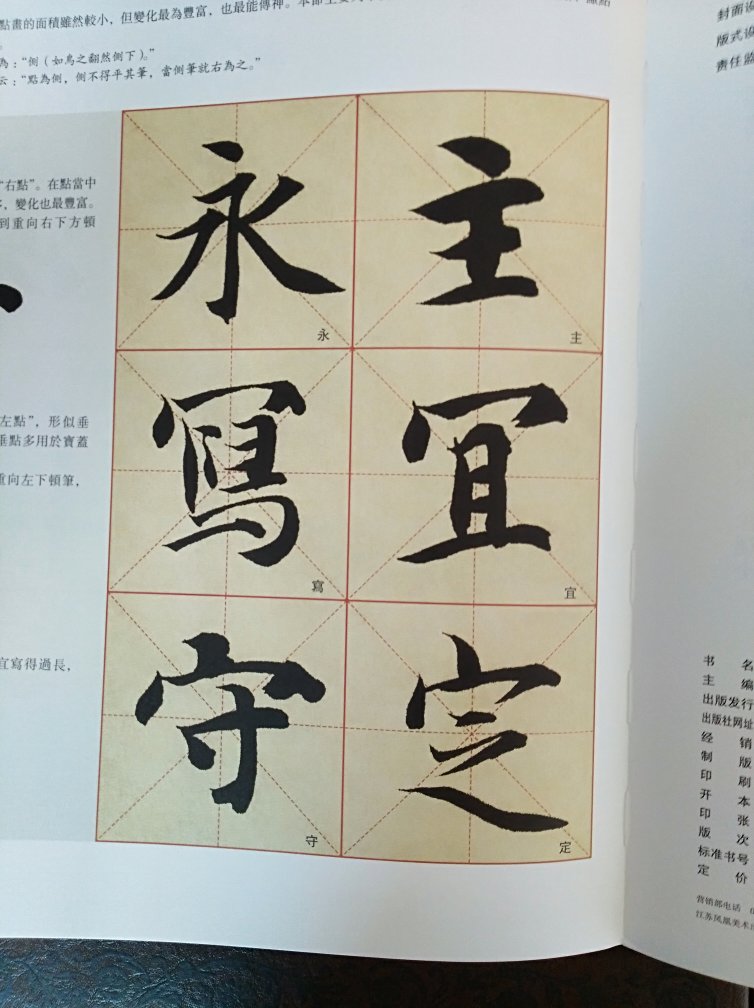 點畫的面積雖然較小，但變化最為豐富，也最能傳神。本節主要
為：“側（如鳥之翻然側下）。”
云：“點為側，側不得平其筆，當側筆就右為之。”
“右點”。在點當中
變化也最豐富。
到重向右下方頓
左點”，形似垂
垂點多用於寶蓋
重向左下頓筆，
宜寫得過長，
永 主
永 主
寫 宜
寫 宜
守 定
守 定
封面设
版式设
责任监
书 名
主 编
出版发行
出版社网址
经 销
制 版
印 刷
开 本
印 张
版 次
标准书号
定 价
营销部电话
江苏凤凰美术出